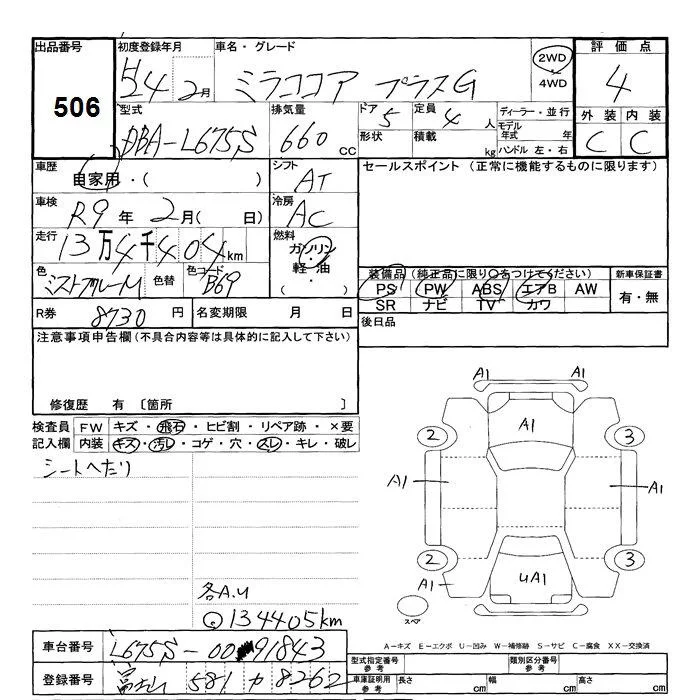 出品番号 初度登録年月 車名・グレード 2WD 評価点
506 H24 2月 ミラココア プラスG 4WD 4
型式 排気量 ドア 5 定員 4人 ディーラー・並行 外装 内装
DBA-L675S 660cc 形状 積載 kg モデル年式 年 C C
ハンドル 左・右
車歴 シフト セールスポイント (正常に機能するものに限ります)
自家用・( ) AT
車検 冷房
R9年 2月( 日) AC
走行 燃料
13万4千404km ガソリン・軽油・( )
色 色替 色コード 装備品 (純正品に限り○をつけてください) 新車保証書
ミストブルーM B69 PS PW ABS エアB AW 有・無
SR ナビ TV カワ
R券 8730円 名変期限 月 日 後日品
注意事項申告欄 (不具合内容等は具体的に記入して下さい)
修復歴 有 〔箇所 〕
検査員 FW キズ・飛石・ヒビ割・リペア跡・×要
記入欄 内装 キズ・汚レ・コゲ・穴・スレ・キレ・破レ
シートへたり
A1 A1
A1
2 3
A1 A1
2 3
A1 UA1
スペア
各A.U
134405km
A-キズ E-エクボ U-凹み W-補修跡 S-サビ C-腐食 XX-交換済
車台番号 L675S-0091843 型式指定番号 参考 類別区分番号 参考
登録番号 富士山 581 カ 8262 車庫証明用 参考 長さ cm 幅 cm 高さ cm